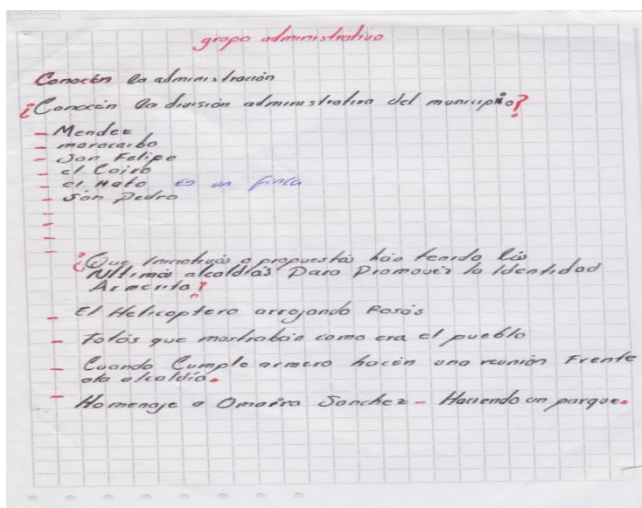 grupo administrativo
Conocen la administración
¿Conocen la división administrativa del municipio?
- Mendez
- maracaibo
- San Felipe
- el Cairo
- el Hato es un finca
- San Pedro
-
-
-
¿Que Iniciativas o propuestas han tenido las
Ultimas alcaldias Para Promover la Identidad
Armerita?
- El Helicoptero arrojando Rosas
- Fotos que mostraban como era el pueblo
- Cuando Cumple armero hacen una reunión Frente
ala alcaldia.
- Homenaje a Omaira Sanchez - Haciendo un parque.